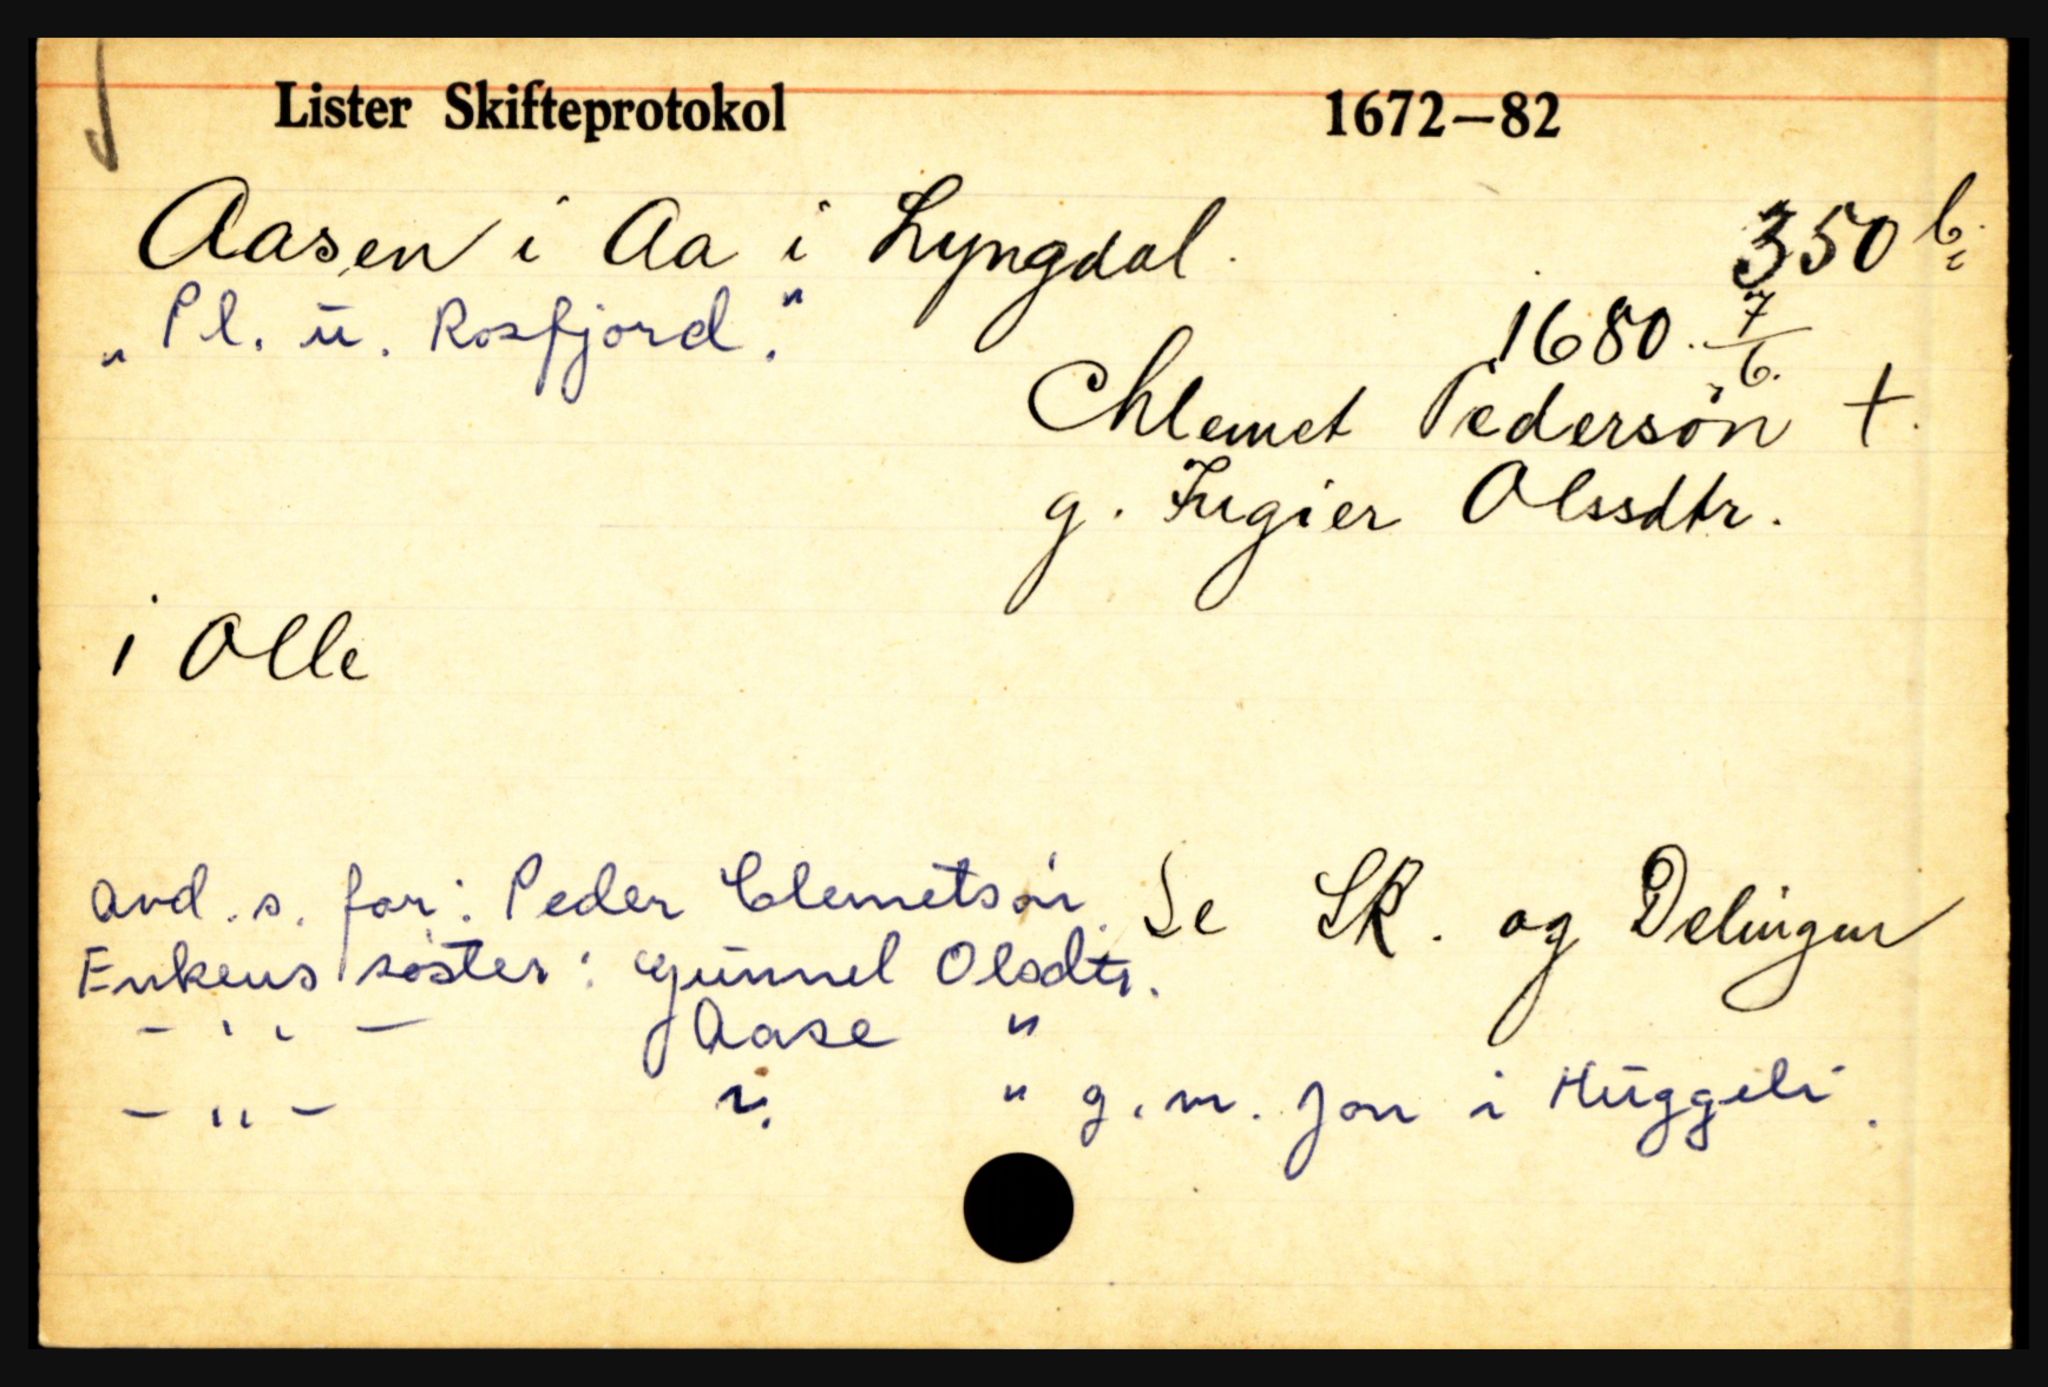 Lister Skifteprotokol 1672—82
Aasen i Aa i Lyngdal. 350 b.
„Pl. u. Rosfjord." 1680. 7/6.
Chlemet Pedersøn †.
g. Ingier Olssdtr.
1 Olle
Avd. s. far: Peder Clemetsøn.
Se SK. og Delingen
Enkens søster: Gunnel Olsdtr.
- ,, - Aase "
- ,, - N. " g. m. Jon i Huggeli.